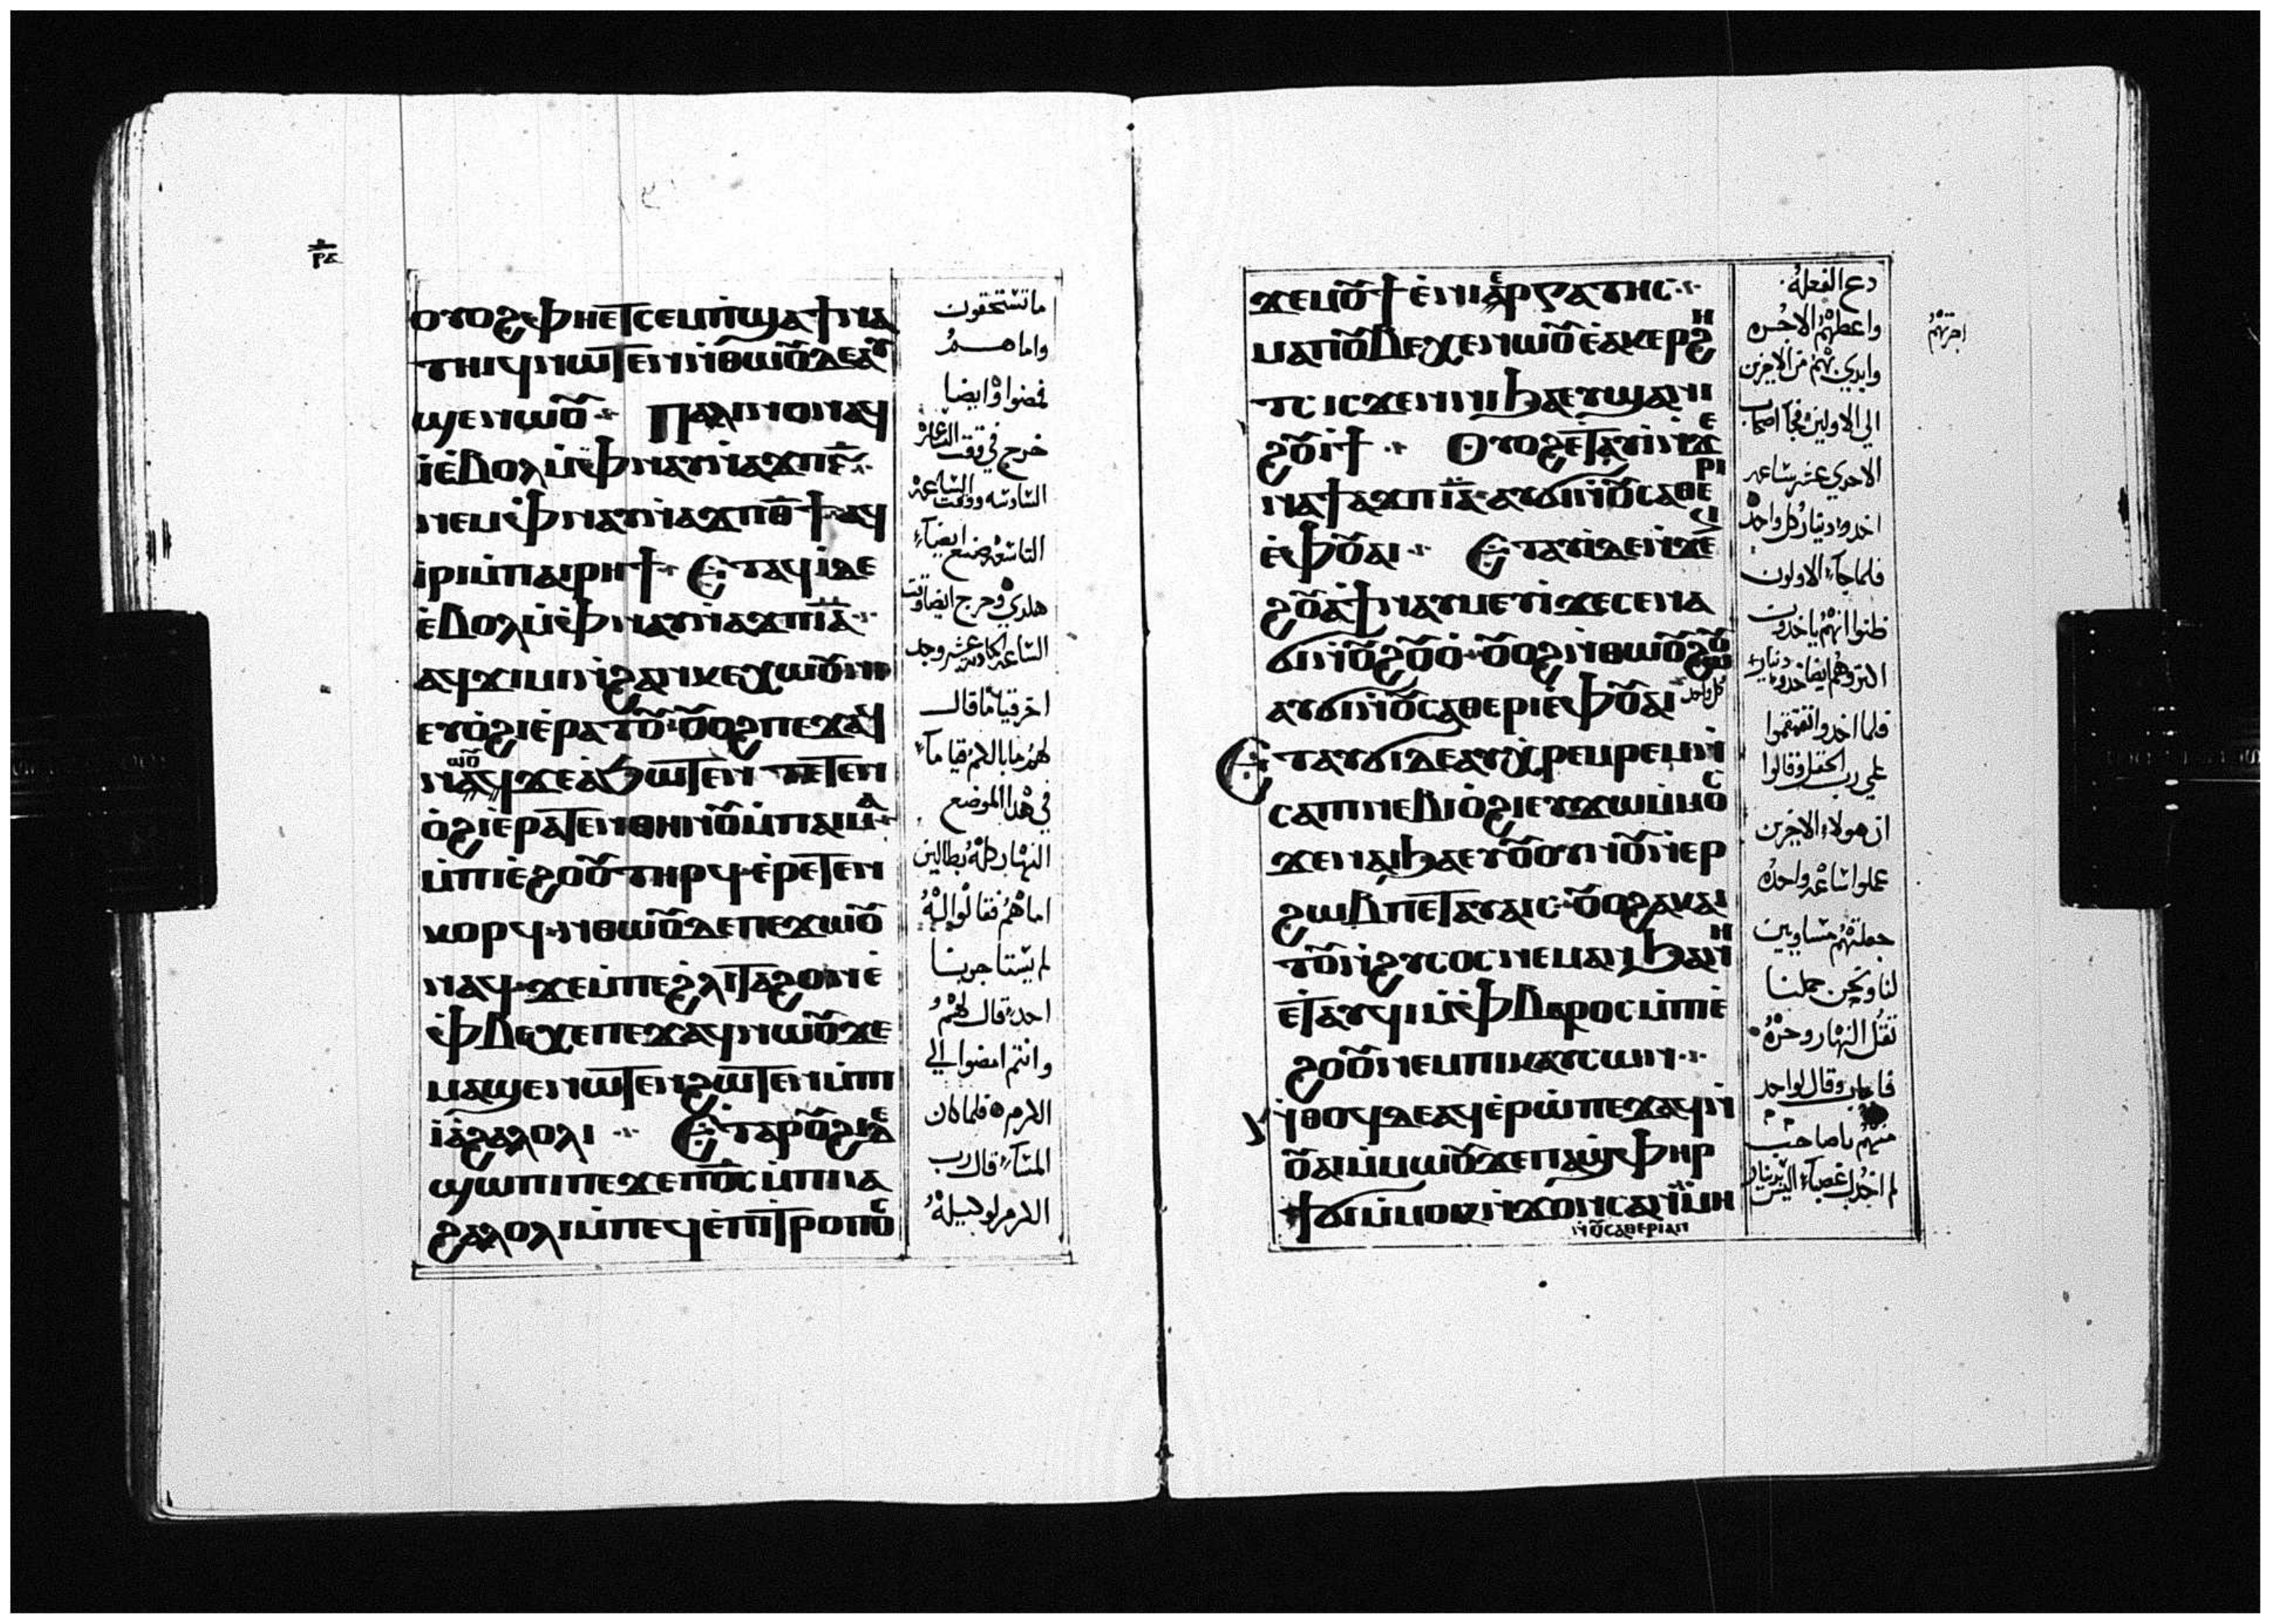 ⲟⲩⲟϩ ⲫⲏⲉⲧⲥⲉⲙⲡϣⲁ ϯⲛⲁ
ⲧⲏⲓϥ ⲛⲱⲧⲉⲛ ⲛⲑⲱⲟⲩ ⲇⲉ ⲁⲩ
ϣⲉⲛⲱⲟⲩ ⲡⲁⲗⲓⲛ ⲟⲛ ⲁϥ
ⲓ ⲉⲃⲟⲗ ⲙⲫⲛⲁⲩ ⲛⲁϫⲡ ⲋ
ⲛⲉⲙ ⲫⲛⲁⲩ ⲛⲁϫⲡ ⲑ ⲁϥ
ⲓⲣⲓ ⲙⲡⲁⲓⲣⲏϯ ⲉⲧⲁϥⲓ ⲇⲉ
ⲉⲃⲟⲗ ⲙⲫⲛⲁⲩ ⲛⲁϫⲡ ⲓⲁ
ⲁϥϫⲓⲙⲓ ⲛϩⲁⲛⲕⲉⲭⲱⲟⲩⲛⲓ
ⲉⲩⲟϩⲓ ⲉⲣⲁⲧⲟⲩ ⲟⲩⲟϩ ⲡⲉϫⲁϥ
ⲛⲱⲟⲩ ϫⲉ ⲁϧⲱⲧⲉⲛ ⲧⲉⲧⲉⲛ
ⲟϩⲓ ⲉⲣⲁⲧⲉⲛⲑⲏⲛⲟⲩ ⲙⲡⲁⲓⲙⲁ
ⲙⲡⲓⲉϩⲟⲟⲩ ⲧⲏⲣϥ ⲉⲣⲉⲧⲉⲛ
ⲕⲟⲣϥ ⲛⲑⲱⲟⲩ ⲇⲉ ⲡⲉϫⲱⲟⲩ
ⲛⲁϥ ϫⲉ ⲙⲡⲉϩⲗⲓ ⲧⲁϩⲟⲛ ⲉ
ⲫⲃⲉⲭⲉ ⲡⲉϫⲁϥ ⲛⲱⲟⲩ ϫⲉ
ⲙⲁϣⲉⲛⲱⲧⲉⲛ ϩⲱⲧⲉⲛ ⲙⲡⲓ
ⲓⲁϩⲁⲗⲟⲗⲓ ⲉⲧⲁⲣⲟⲩϩⲓ ⲇⲉ
ϣⲱⲡⲓ ⲡⲉϫⲉ ⲡⲟⲥ ⲙⲡⲓⲓⲁ
ϩⲁⲗⲟⲗⲓ ⲙⲡⲉϥⲉⲡⲓⲧⲣⲟⲡⲟⲥ
ما تستحقون
واما هم
فمضوا وايضا
خرج في وقت الساعة
السادسه ووقت الساعه
التاسعه صنع ايضا
هكدي وخرج ايضا وقت
الساعه الحاديه عشر وجد
اخر قياما قال
لهم ما بالكم قياما
في هدا الموضع
النهار كله بطالين
اما هم فقالوا له
لم يستاجرنا
احد قال لهم
وانتم امضوا الي
الكرم فلما كان
المسآء قال رب
الكرم لوكيله
ϫⲉ ⲙⲟⲩϯ ⲉⲛⲓⲉⲣⲅⲁⲧⲏⲥ
ⲙⲁ ⲡⲟⲩⲃⲉⲭⲉ ⲛⲱⲟⲩ ⲉⲁⲕⲉⲣϩⲏ
ⲧⲥ ⲓⲥϫⲉⲛ ⲛⲓϧⲁⲉⲩ ϣⲁ ⲛⲓ
ϩⲟⲩⲓϯ ⲟⲩⲟϩ ⲉⲧⲁⲩⲓ ⲛϫⲉ
ⲛⲁ ϯⲁϫⲡ ⲓⲁ ⲁⲩϭⲓ ⲛⲟⲩⲥⲁⲑⲉⲣⲓ
ⲉⲫⲟⲩⲁⲓ ⲉⲧⲁⲩⲓ ⲇⲉ ⲛϫⲉ ⲛⲓ
ϩⲟⲩⲁϯ ⲛⲁⲩⲙⲉⲩⲓ ϫⲉ ⲥⲉⲛⲁ
ϭⲓ ⲛⲟⲩϩⲟⲩⲟ ⲟⲩⲟϩ ⲛⲑⲱⲟⲩ ϩⲱⲟⲩ
ⲁⲩϭⲓ ⲛⲟⲩⲥⲁⲑⲉⲣⲓ ⲉⲫⲟⲩⲁⲓ
ⲉⲧⲁⲩϭⲓ ⲇⲉ ⲁⲩⲭⲣⲉⲙⲣⲉⲙ ⲛ
ⲥⲁ ⲡⲓⲛⲉⲃⲓⲟϩⲓ ⲉⲩϫⲱ ⲙⲙⲟⲥ
ϫⲉ ⲛⲁⲓϧⲁⲉⲩ ⲟⲩⲟⲩⲛⲟⲩ ⲛⲉⲣ
ϩⲱⲃ ⲡⲉⲧⲁⲩⲁⲓⲥ ⲟⲩⲟϩ ⲁⲕⲁⲓ
ⲧⲟⲩ ⲛϩⲩⲥⲟⲥ ⲛⲉⲙⲁⲛ ϧⲁ ⲛⲏ
ⲉⲧⲁⲩϥⲓ ⲙⲫⲃⲁⲣⲟⲥ ⲙⲡⲓⲉ
ϩⲟⲟⲩ ⲛⲉⲙ ⲡⲓⲕⲁⲩⲥⲱⲛ
ⲛⲑⲟϥ ⲇⲉ ⲁϥⲉⲣⲟⲩⲱ ⲡⲉϫⲁϥ ⲛ
ⲟⲩⲁⲓ ⲙⲙⲱⲟⲩ ϫⲉ ⲡⲁϣⲫⲏⲣ
ϯϭⲓ ⲙⲙⲟⲕ ⲛϫⲟⲛⲥ ⲁⲛ ⲙⲏ
ⲛⲟⲩⲥⲁⲑⲉⲣⲓ ⲁⲛ
دع الفعله
واعطهم الاجره
وابدي بهم من الاخرين
الي الاولين فجآ اصحاب
الاحدي عشر ساعه
اخدوا دينار كل واحد
فلما جآء الاولون
ظنوا انهم ياخدون
اكتر وهم ايضا اخدوا دينار
كل واحد
فلما اخدوا تقمقموا
علي رب الحقل وقالوا
ان هولاء الاخرين
عملوا ساعه واحده
جعلتهم مساويين
لنا ونحن حملنا
تقل النهار وحره
فاجاب وقال لواحد
منهم يا صاحب
اجرتهم